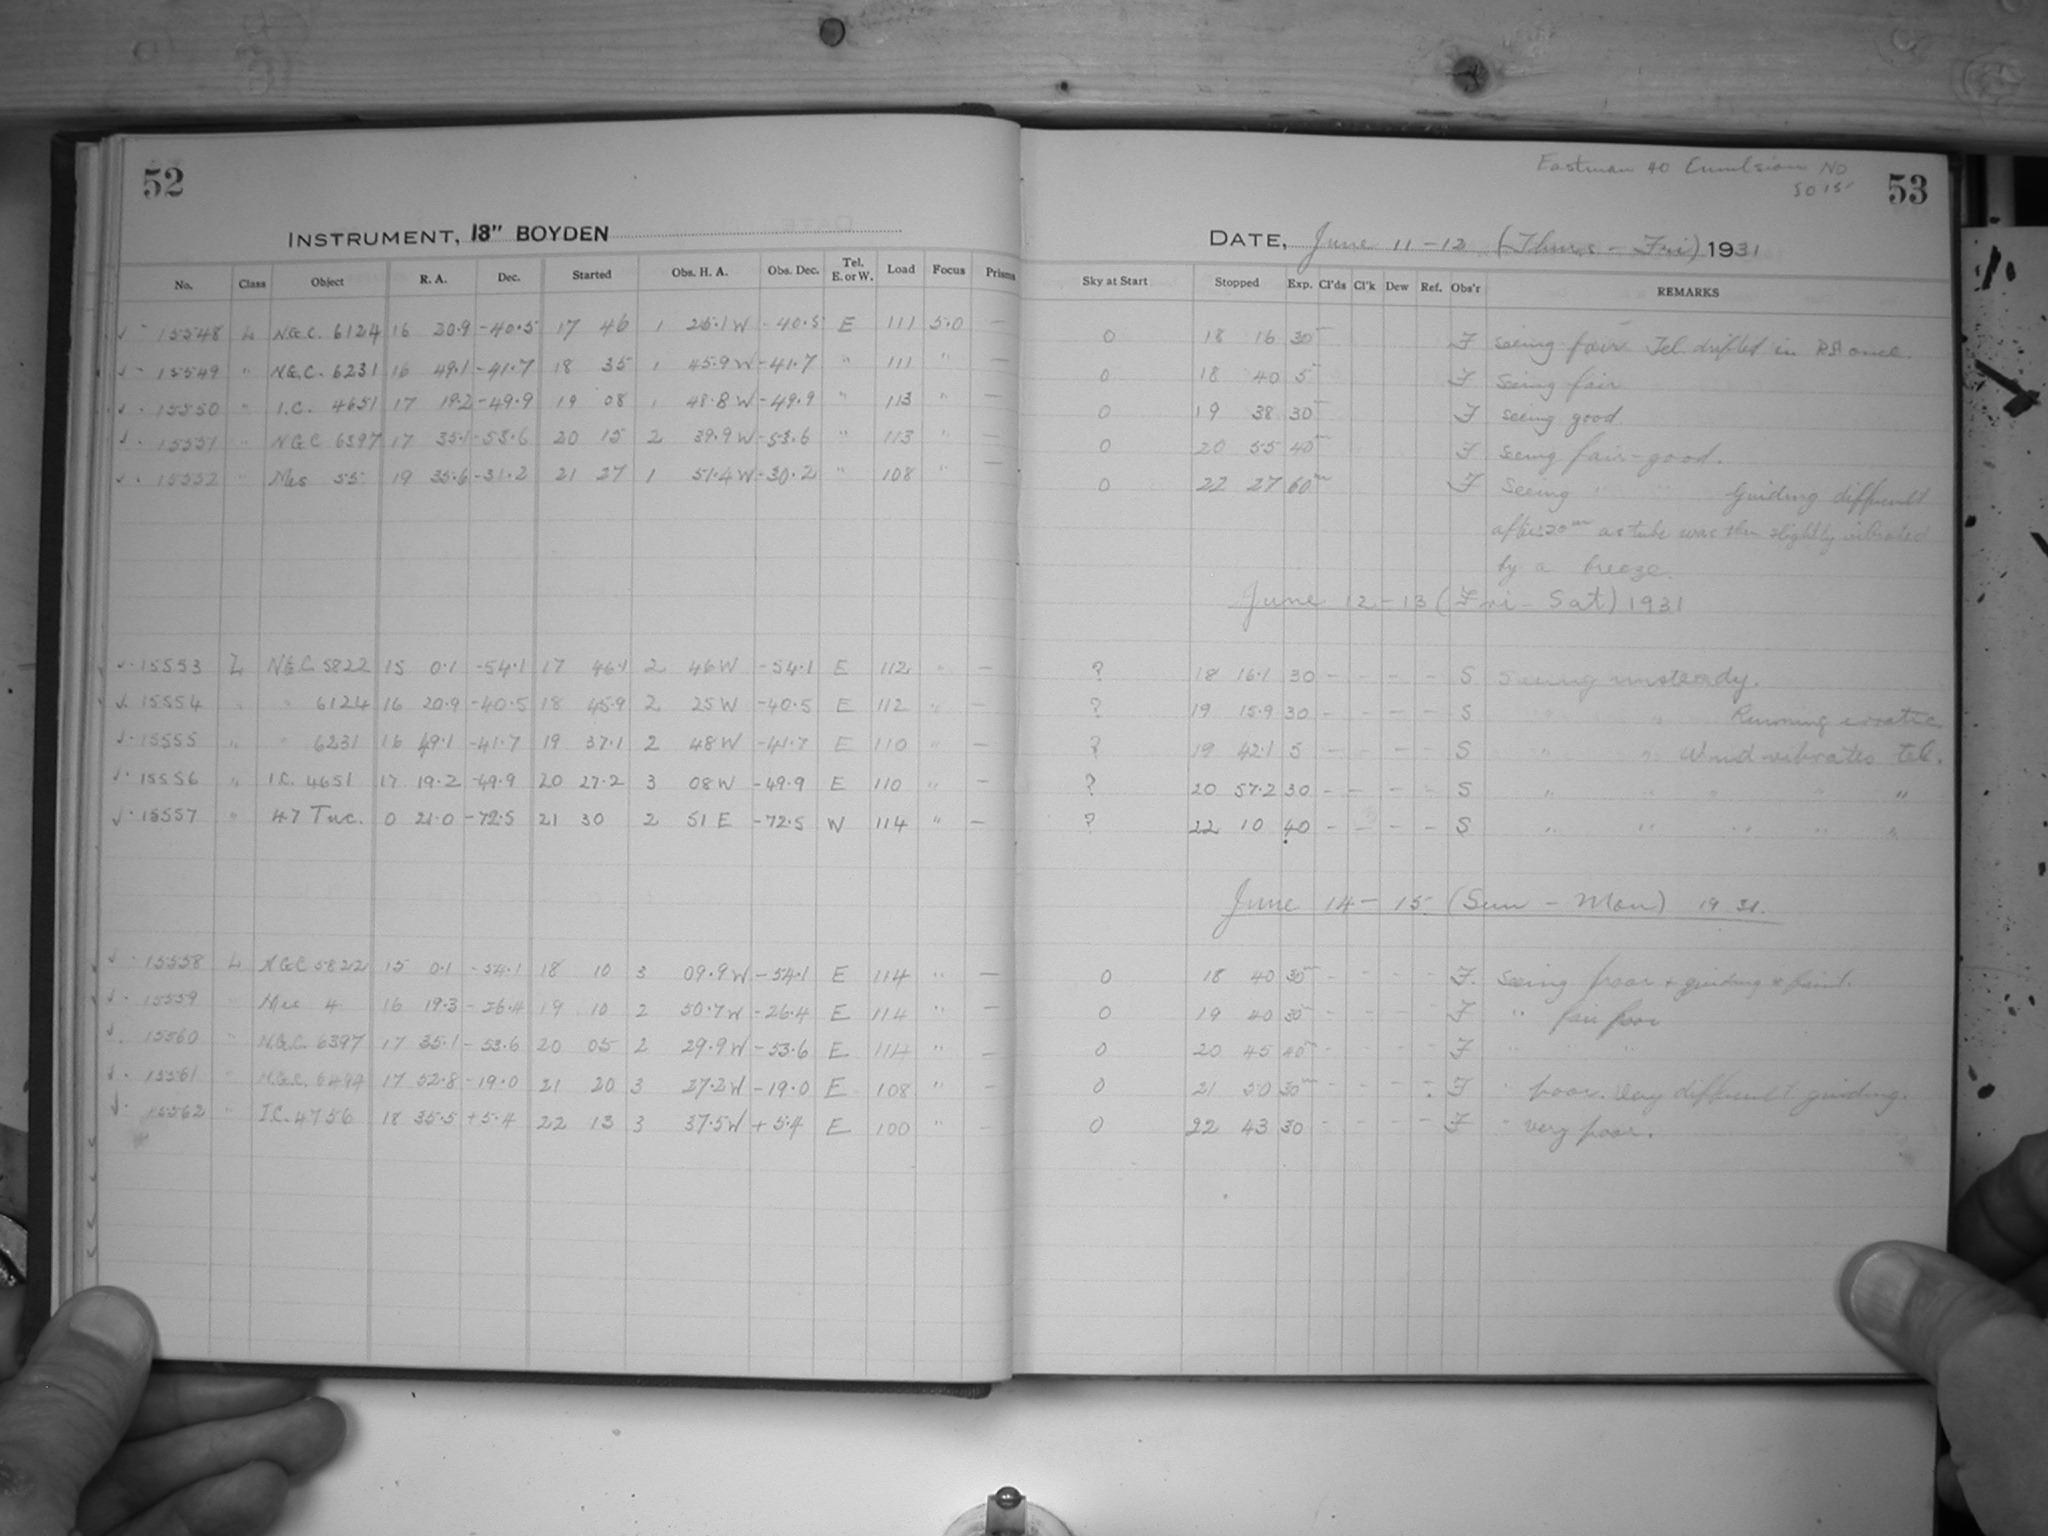 52
INSTRUMENT, 13" BOYDEN
No. Class Object R. A. Dec. Started Obs. H. A. Obs. Dec. Tel. E. or W. Load Focus Prisms
15548 L N.G.C. 6124 16 20.9 -40.5 17 46 1 25.1 W -40.5 E 111 5.0 —
15549 " N.G.C. 6231 16 49.1 -41.7 18 35 1 45.9 W -41.7 " 111 " —
15550 " I.C. 4651 17 19.2 -49.9 19 08 1 48.8 W -49.9 " 113 " —
15551 " N.G.C. 6397 17 35.1 -53.6 20 15 2 39.9 W -53.6 " 113 " —
15552 " Mes 55 19 35.6 -31.2 21 27 1 51.4 W -30.2 " 108 " —
15553 L N.G.C. 5822 15 0.1 -54.1 17 46.1 2 46 W -54.1 E 112 " —
15554 " " 6124 16 20.9 -40.5 18 45.9 2 25 W -40.5 E 112 " —
15555 " " 6231 16 49.1 -41.7 19 37.1 2 48 W -41.7 E 110 " —
15556 " I.C. 4651 17 19.2 -49.9 20 27.2 3 08 W -49.9 E 110 " —
15557 " 47 Tuc. 0 21.0 -72.5 21 30 2 51 E -72.5 W 114 " —
15558 L N.G.C. 5822 15 0.1 -54.1 18 10 3 09.9 W -54.1 E 114 " —
15559 " Mes 4 16 19.3 -26.4 19 10 2 50.7 W -26.4 E 114 " —
15560 " N.G.C. 6397 17 35.1 -53.6 20 05 2 29.9 W -53.6 E 114 " —
15561 " N.G.C. 6494 17 52.8 -19.0 21 20 3 27.2 W -19.0 E 108 " —
15562 " I.C. 4756 18 35.5 +5.4 22 13 3 37.5 W +5.4 E 100 " —
Eastman 40 Emulsion No
5015
53
DATE, June 11-12 (Thurs - Fri) 1931
Sky at Start Stopped Exp. Cl'ds Cl'k Dew Ref. Obs'r REMARKS
0 18 16 30m F Seeing fair. Tel. drifted in RA once.
0 18 40 5 F Seeing fair
0 19 38 30m F Seeing good
0 20 55 40m F Seeing fair-good.
0 22 27 60m F Seeing " " Guiding difficult
after 20m as tube was then slightly vibrated
by a breeze.
June 12-13 (Fri - Sat) 1931
? 18 16.1 30 - - - - S Seeing unsteady.
? 19 15.9 30 - - - - S " " Running erratic
? 19 42.1 5 - - - - S " " Wind vibrates tel.
? 20 57.2 30 - - - - S " " " " "
? 22 10 40 - - - - S " " " " "
June 14-15 (Sun - Mon) 1931.
0 18 40 30m - - - - F. Seeing poor + guiding * faint.
0 19 40 30m - - - - F " fair poor
0 20 45 40m - - - - F " " "
0 21 50 30m - - - - F " poor. Very difficult guiding.
0 22 43 30 - - - - F " very poor.